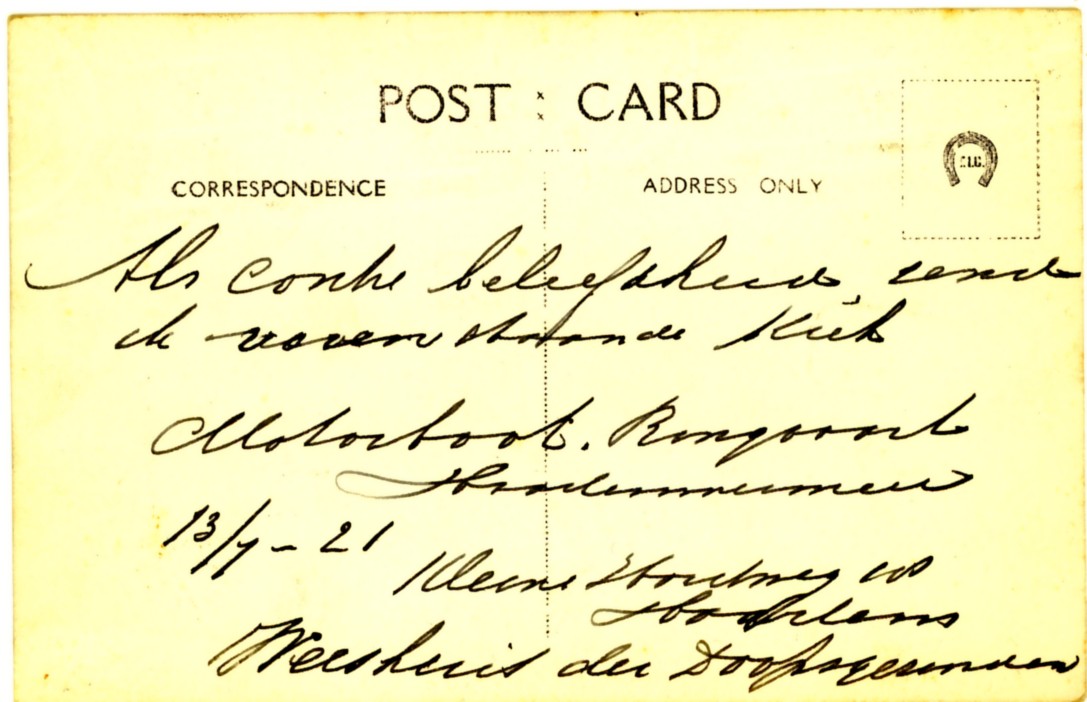 POST CARD
CORRESPONDENCE
ADDRESS ONLY
Als contre beleefdheid, zend
ik staande Kiek
Motorboot. Ringvaart
Haarlemmermeer
13/7 - 21
Kleine Houtweg
Haarlem
Weeshuis der Doopsgezinden